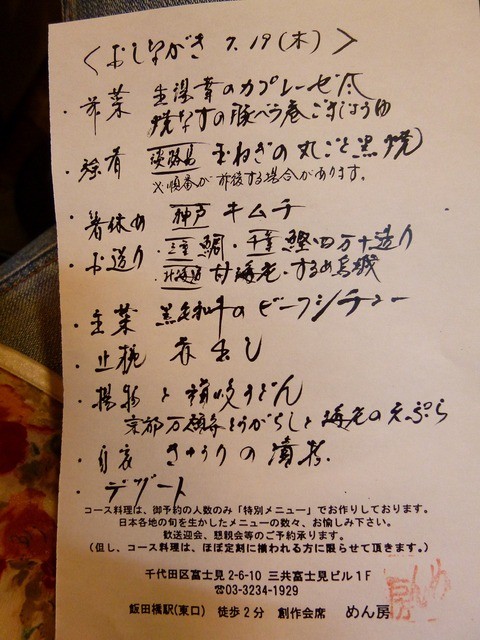 ＜おしながき 7.19(木)＞
・前菜 生湯葉のカプレーゼ風
焼なすの豚バラ巻ごまじょうゆ
・強肴 淡路島 玉ねぎの丸ごと黒焼
※順番が前後する場合があります。
・箸休め 神戸 キムチ
・お造り ・三重 鯛・千葉 鰹四万十造り
・北海道 甘海老・するめ烏賊
・主菜 黒毛和牛のビーフシチュー
・止椀 赤出し
・揚物と讃岐うどん
京都万願寺とうがらしと海老の天ぷら
・自家 きゅうりの漬物
・デザート
コース料理は、御予約の人数のみ「特別メニュー」でお作りしております。
日本各地の旬を生かしたメニューの数々、お愉しみ下さい。
歓送迎会、懇親会等のご予約承ります。
(但し、コース料理は、ほぼ定刻に揃われる方に限らせて頂きます。)
千代田区富士見2-6-10 三共富士見ビル1F
☎03-3234-1929
飯田橋駅(東口) 徒歩2分 創作会席 めん房